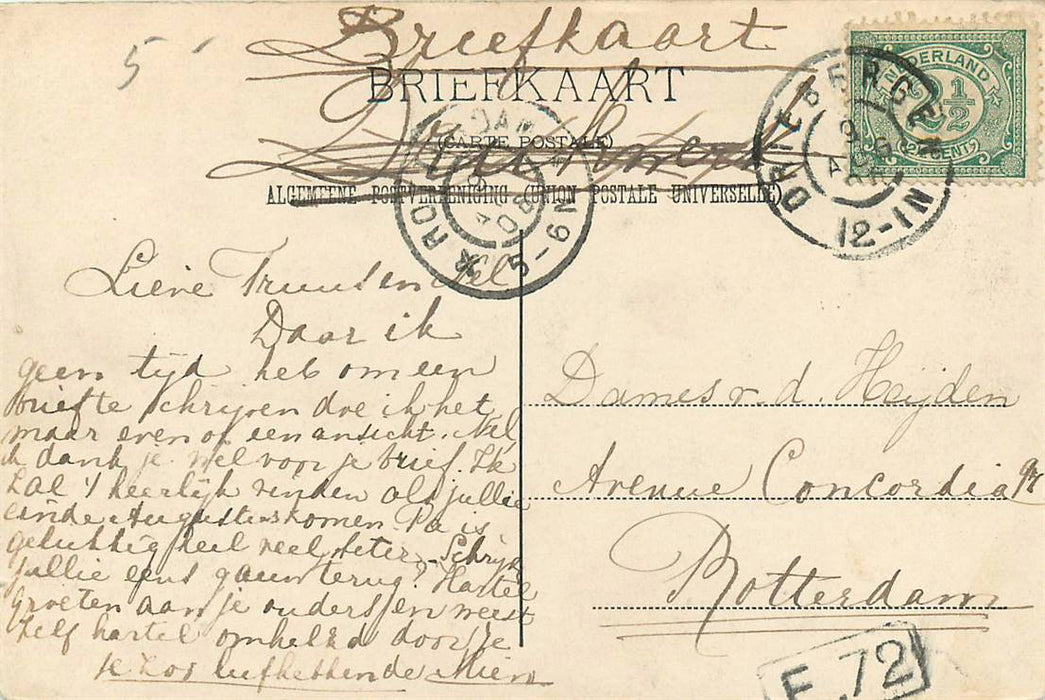 5
Briefkaart
BRIEFKAART
(CARTE POSTALE)
ALGEMEENE POSTVEREENIGING (UNION POSTALE UNIVERSELLE)
NEDERLAND
2½
2½ CENT
DRIEBERGEN
12-1N
ROTTERDAM
08
5-6N
Lieve Truus en Nel
Daar ik
geen tijd heb om een
briefte schrijven doe ik het
maar even op een ansicht. Nel,
ik dank je wel voor je brief. Ik
zal 't heerlijk vinden als jullie
einde Augustus komen. Pa is
gelukkig heel veel beter. Schrijf
jullie eens gauw terug? Hartel
groeten aan je ouders en weest
zelf hartel omhelsd door je
je zoo liefhebbende Mien
Dames v. d. Heijden
Avenue Concordia 92
Rotterdam
E 72